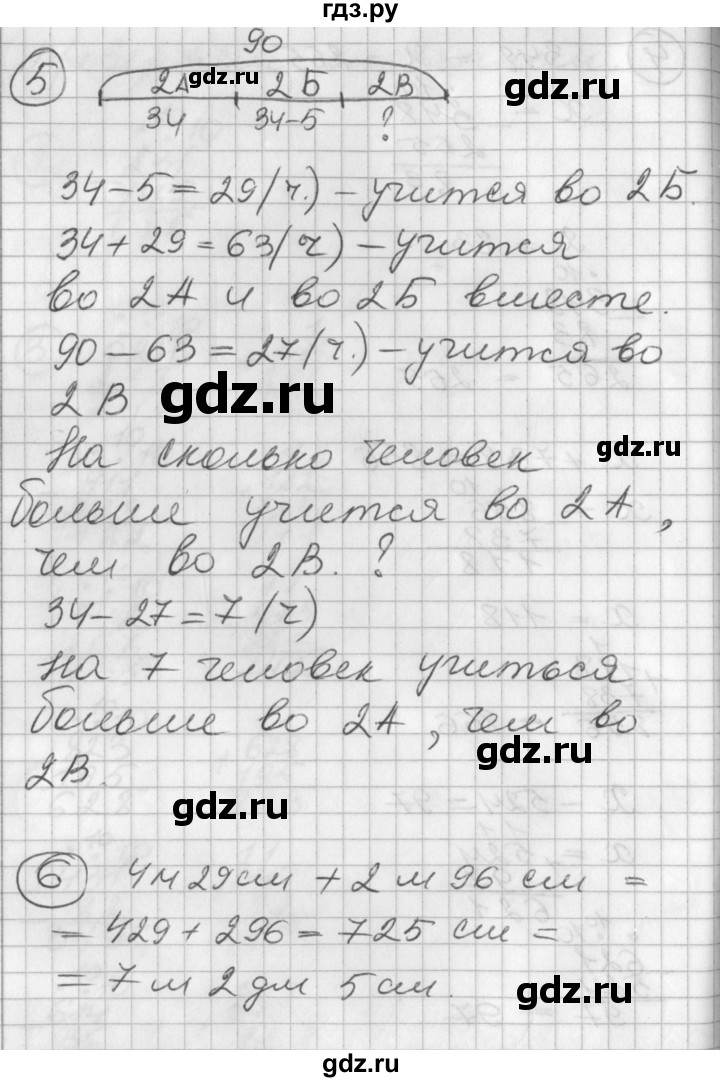 гдз.ру
90
5
2А 2Б 2В
gdz.ru
gdz.ru
34 34-5 ?
34-5=29(ч.)-учится во 2Б.
34+29=63(ч)-учится
во 2А и во 2Б вместе.
90-63=27(ч.)-учится во
2В
gdz.ru
gdz.ru
На сколько человек
больше учится во 2А,
чем во 2В.?
34-27=7(ч)
На 7 человек учиться
больше во 2А, чем во
gdz.ru
2В.
gdz.ru
6 4м29см+2м96см=
=429+296=725 см=
=7м 2дм 5см.
gdz.ru
gdz.ru